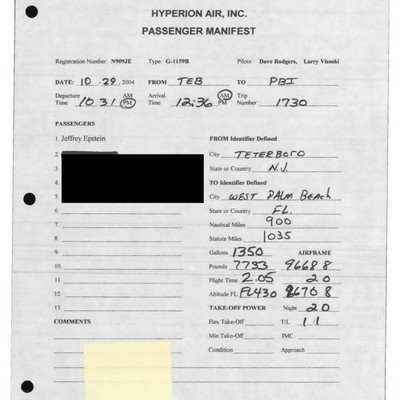 HYPERION AIR, INC.
PASSENGER MANIFEST
Registration Number N909JE Type: G-1159B Pilots: Dave Rodgers, Larry Visoski
DATE: 10 . 29, 2004 FROM TEB TO PBI
Departure Time 10 31 AM PM Arrival Time 12:36 AM PM Trip Number 1730
PASSENGERS
1. Jeffrey Epstein FROM Identifier Defined
2. City TETERBORO
3. State or Country N.J.
4. TO Identifier Defined
5. City WEST PALM BEACH
6. State or Country FL.
7. Nautical Miles 900
8. Statute Miles 1035
9. Gallons 1350 AIRFRAME
10. Pounds 7793 9668 8
11. Flight Time 2.05 2 0
12. Altitude FL FL430 9670 8
13. TAKE-OFF POWER Night 2 0
COMMENTS Flex Take-Off T/L 1 1
Min Take-Off IMC
Condition Approach